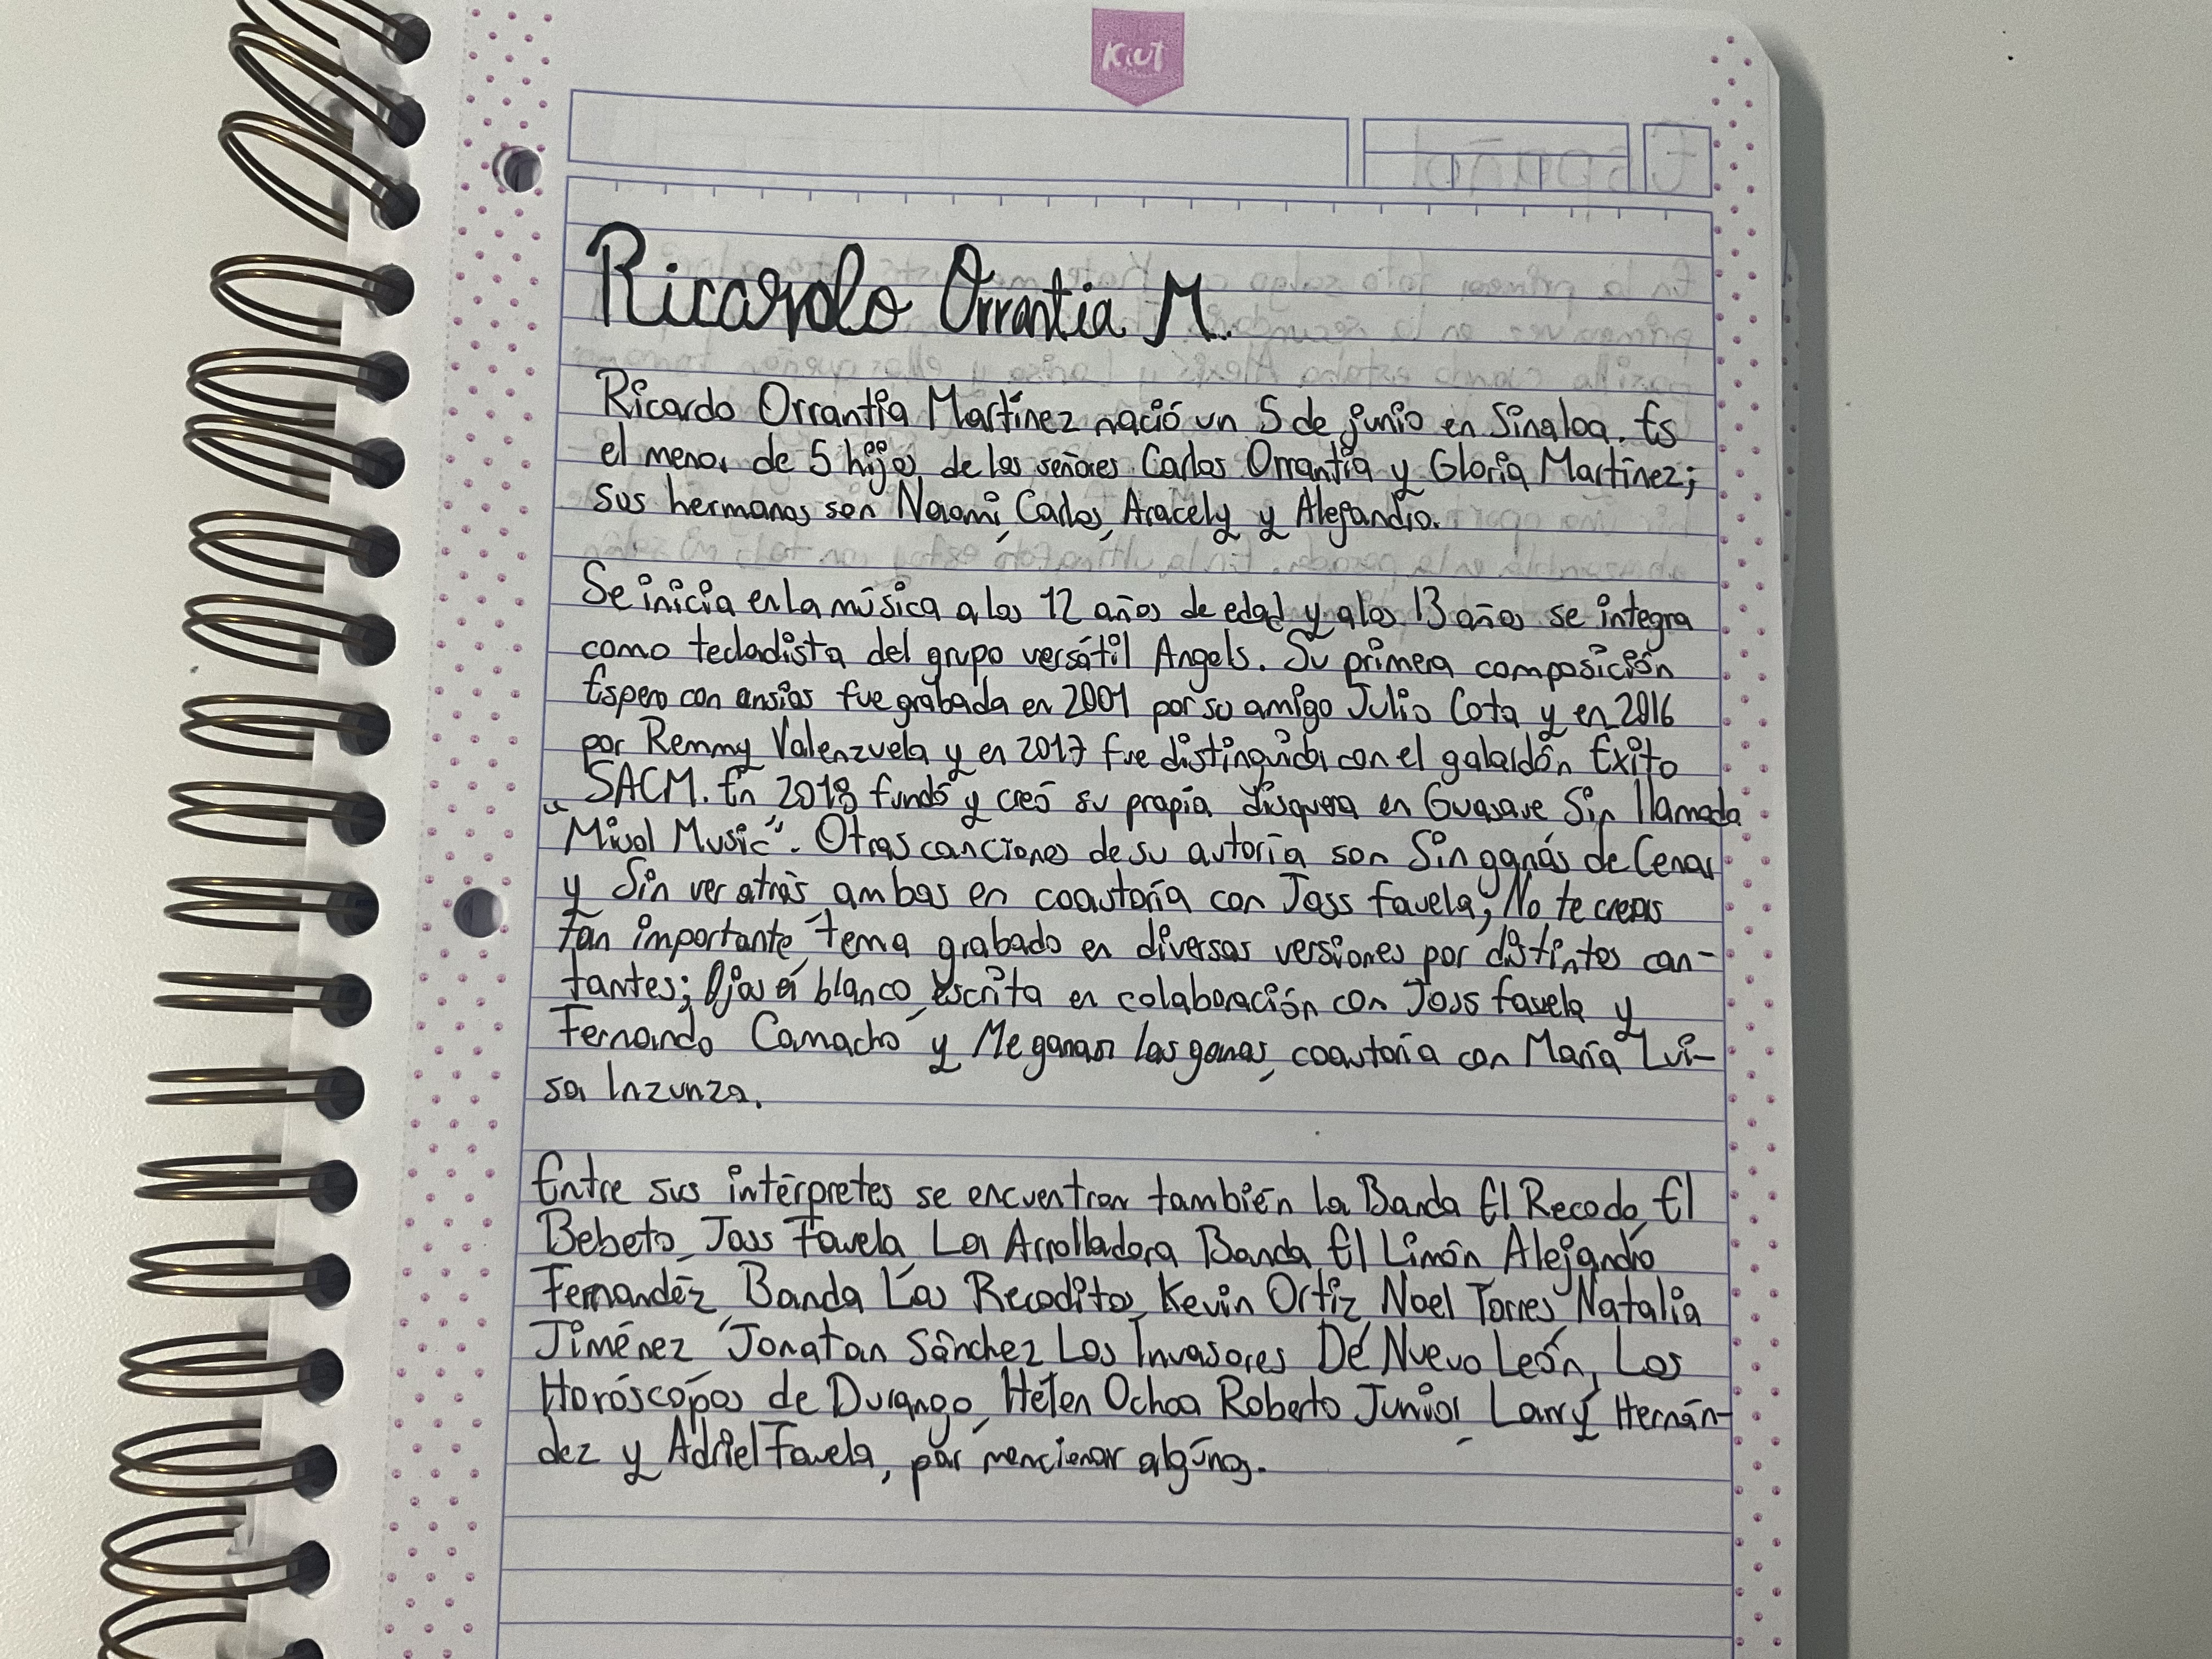 Kiut
Ricardo Orrantia M.
Ricardo Orrantia Martínez nació un 5 de junio en Sinaloa. Es
el menor de 5 hijos de los señores Carlos Orrantia y Gloria Martínez;
sus hermanos son Naomi, Carlos, Aracely y Alejandro.
Se inicia en la música a los 12 años de edad y a los 13 años se integra
como tecladista del grupo versátil Angels. Su primera composición
Espero con ansias fue grabada en 2001 por su amigo Julio Cota y en 2016
por Remmy Valenzuela y en 2017 fue distinguida con el galardón Éxito
SACM. En 2018 fundó y creó su propia disquera en Guasave Sin llamada
"Music". Otras canciones de su autoría son Sin ganas de Cenar
y Sin ver atrás ambas en coautoría con Joss Favela; No te creas
tan importante, tema grabado en diversas versiones por distintos can-
tantes; Ojos en blanco, escrita en colaboración con Joss Favela y
Fernando Camacho y Me ganan las ganas, coautoría con María Lui-
sa Inzunza.
Entre sus intérpretes se encuentran también la Banda El Recodo, El
Bebeto, Joss Favela, La Arrolladora Banda El Limón, Alejandro
Fernandéz, Banda Los Recoditos, Kevin Ortiz, Noel Torres, Natalia
Jiménez, Jonatan Sánchez Los Invasores De Nuevo León, Los
Horóscopos de Durango, Helen Ochoa Roberto Junior, Larry Hernán-
dez y Adriel Favela, por mencionar algunos.